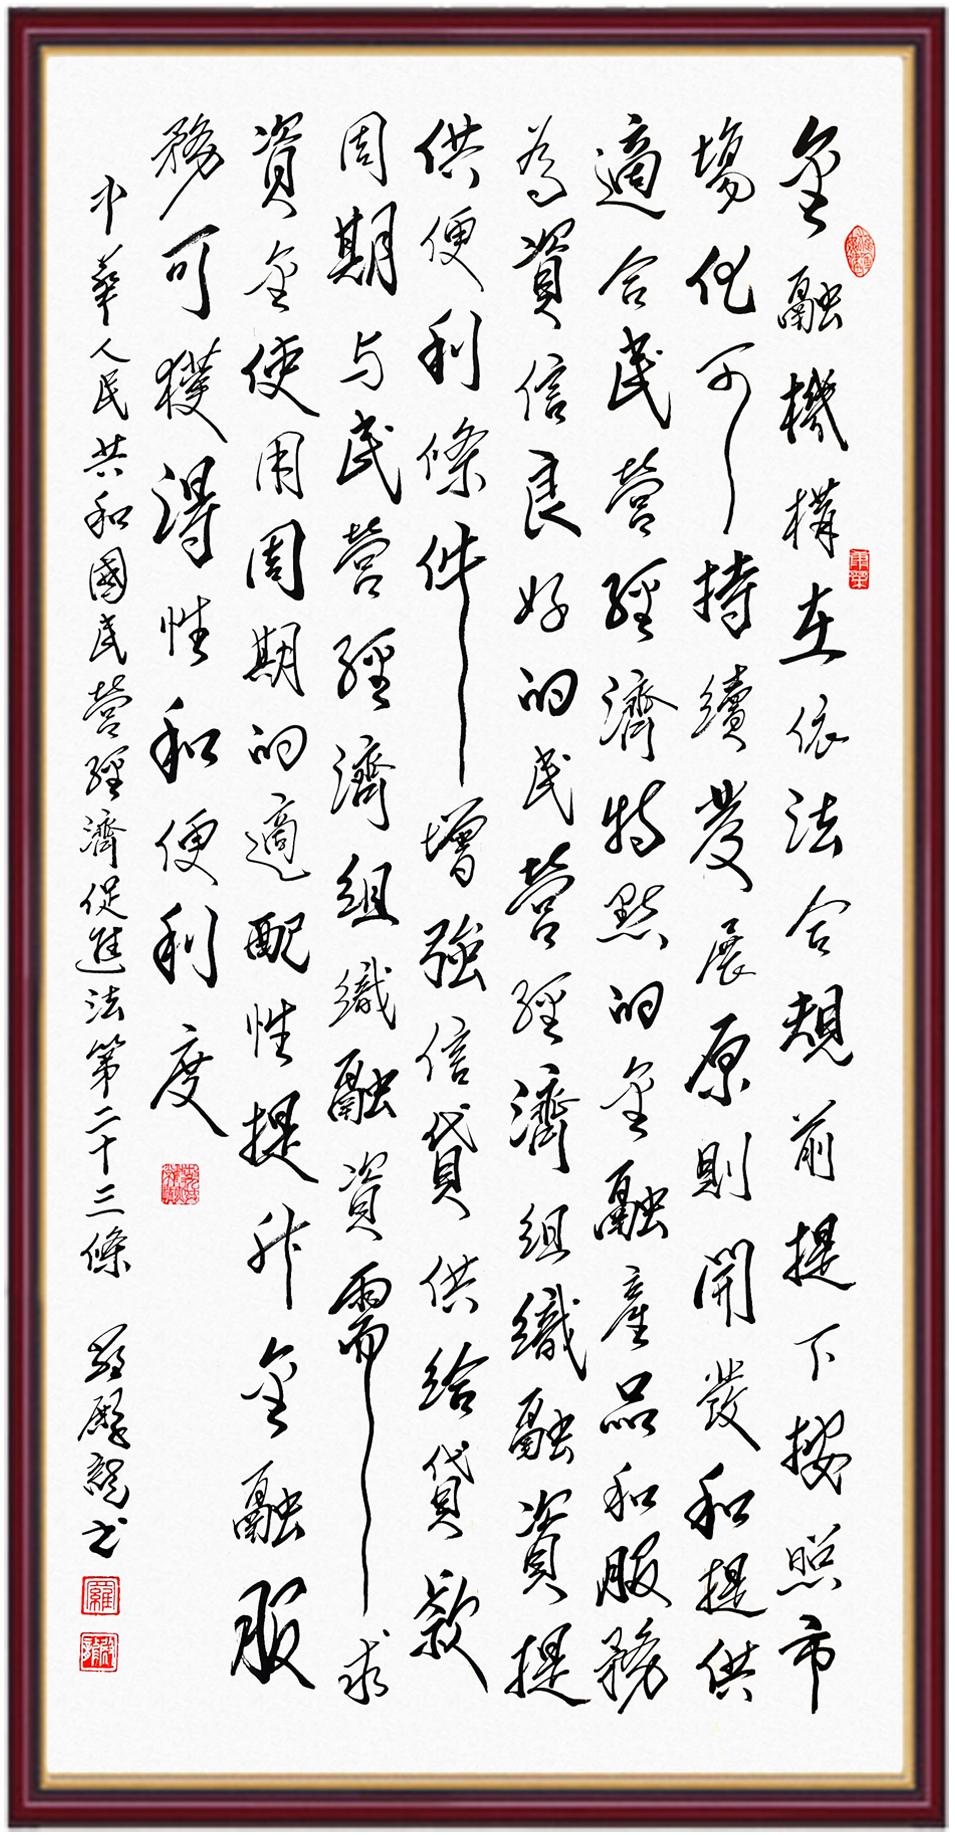 金融機構在依法合規前提下按照市
場化可持續發展原則開發和提供
適合民營經濟特點的金融產品和服務
為資信良好的民營經濟組織融資提
供便利條件增強信貸供給貸款
周期与民營經濟組織融資需求
資金使用周期的適配性提升金融服
務可獲得性和便利度
中華人民共和國民營經濟促進法第二十三條 羅殿龍书
羅